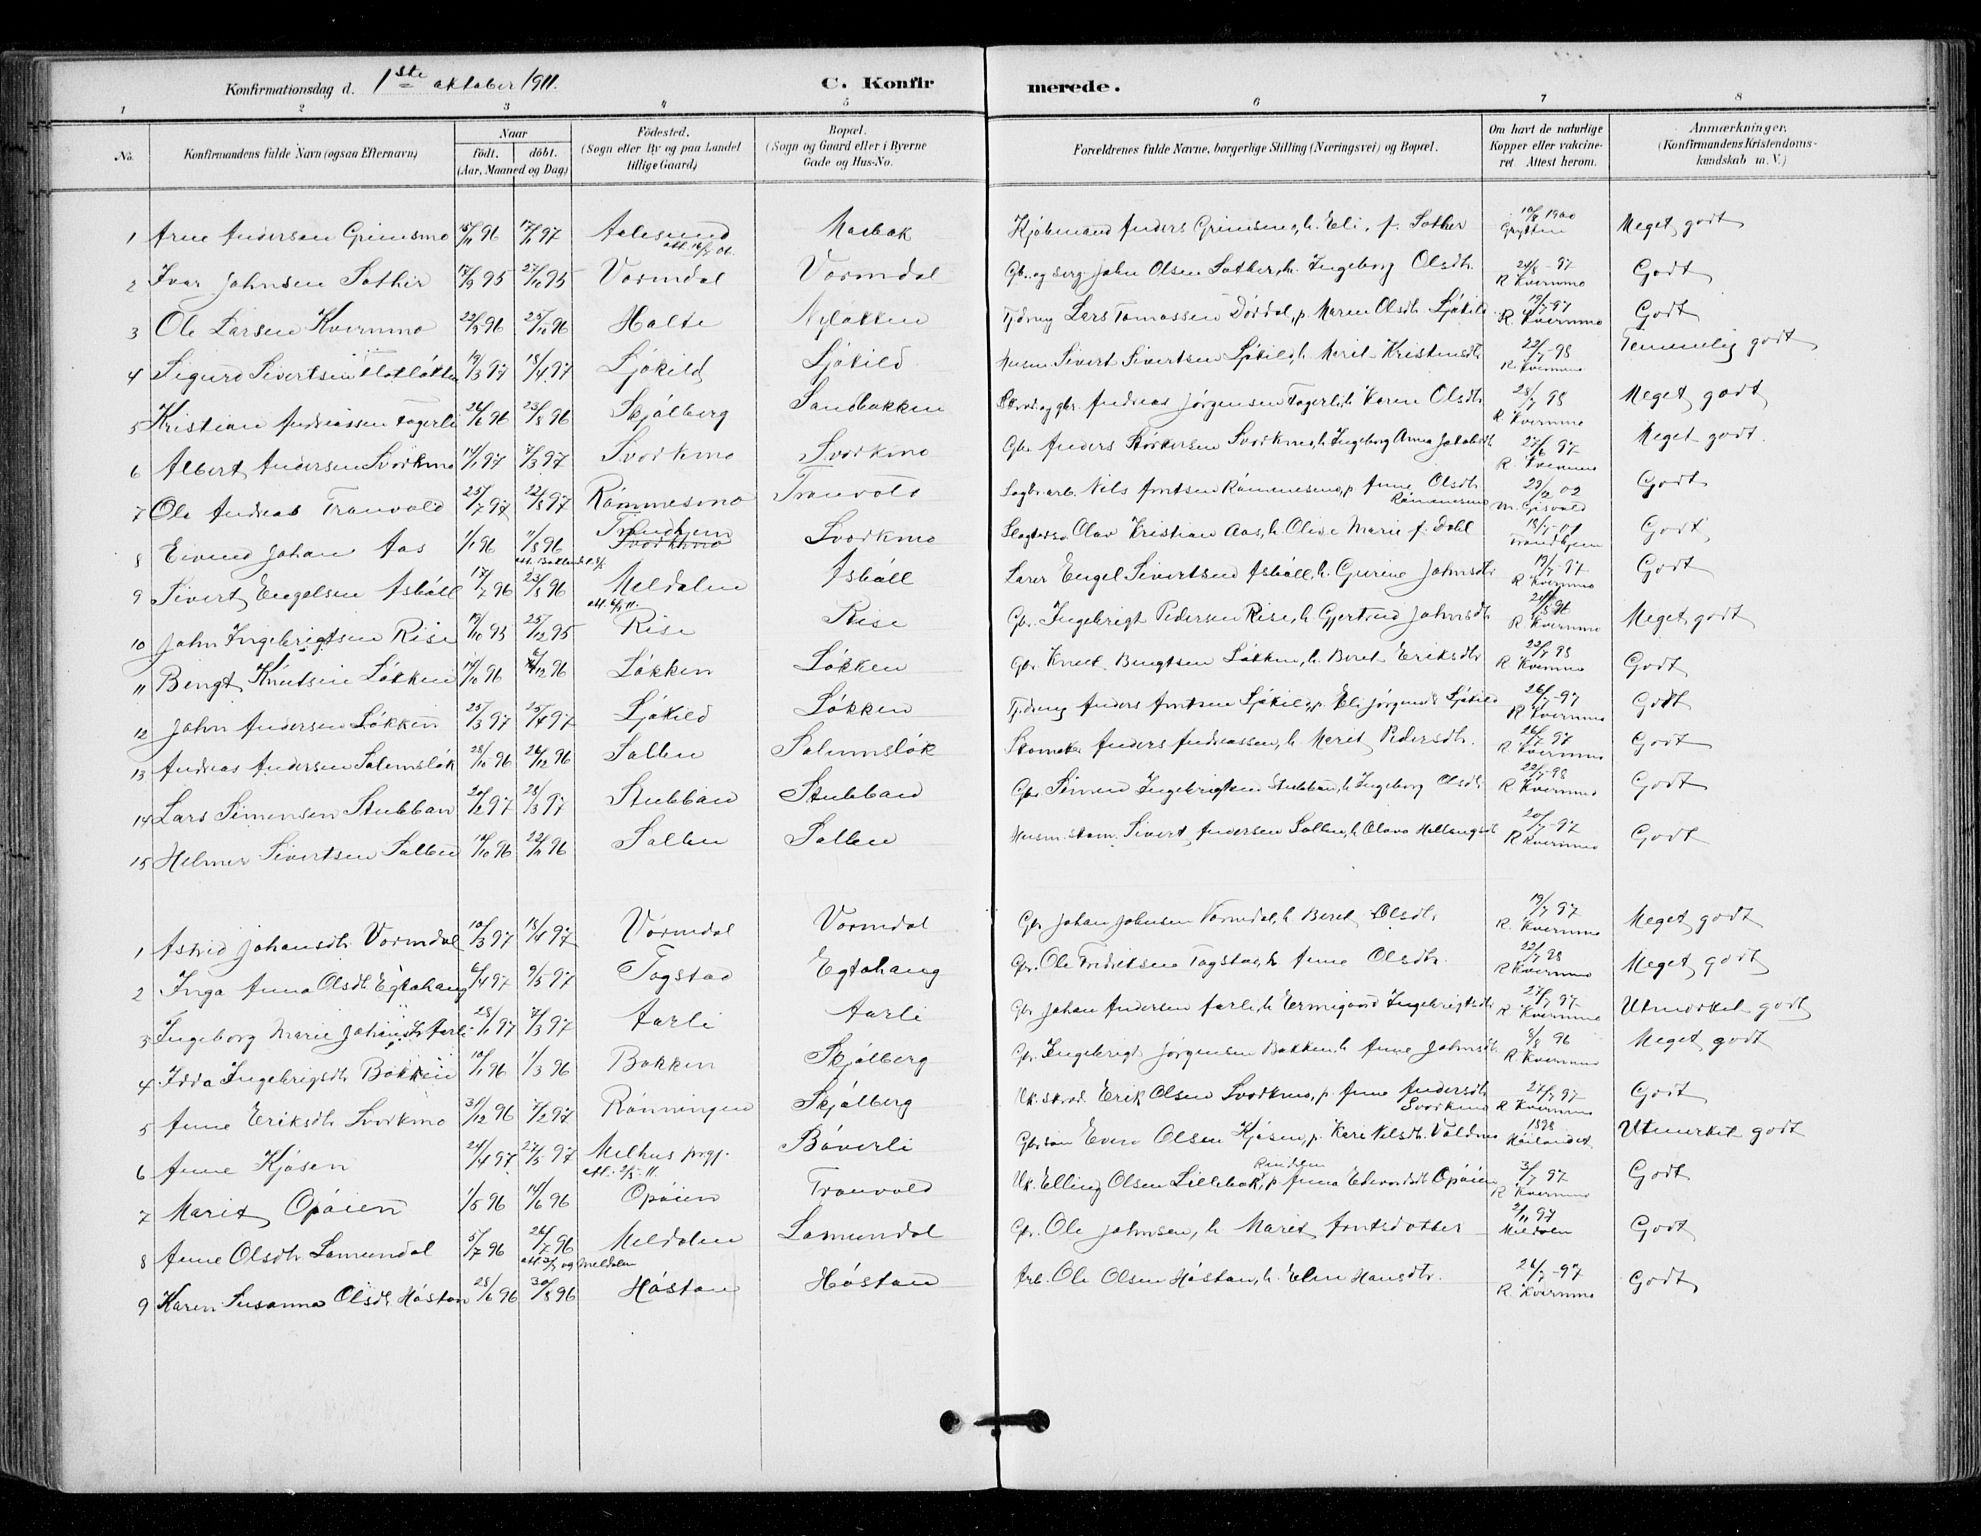 Konfirmationsdag d. 1ste oktober 1911. C. Konfirmerede.
1 2 3 4 5 6 7 8
No. Konfirmandens fulde Navn (ogsaa Efternavn) Naar født. døbt. (Aar, Maaned og Dag) Födested. (Sogn eller By og paa Landet tillige Gaard) Bopæl. (Sogn og Gaard eller i Byerne Gade og Hus-No. Forældrenes fulde Navne, borgerlige Stilling (Næringsvei) og Bopæl. Om havt de naturlige Kopper eller vakcineret Attest herom. Anmærkninger. (Konfirmandens Kristendomskundskab m. V.)
1 Arne Andersen Grimsmo 96 97 Aalesund Moebak Kjøbmand Anders Grimsmo, h. Eli, f. Sother 1900 Grytten Meget godt
2 Ivar Johnsen Sother 95 95 Vormdal Vormdal Gbr. og serg. John Olsen Sother, h. Ingeborg Olsdtr. 24/8-97 R Kvernmo Godt
3 Ole Larsen Kvernmo 22/9 96 25/10 96 Holte Nyløkken Tjdreng Lars Tomassen Dørdal, p. Maren Olsdtr Sjøkild 19/7-97 R. Kvernmo Godt
4 Sigurd Sivertsen 19/3 97 18/4 97 Sjøkild Sjøkild Husm. Sivert Sivertsen Sjøkild, h. Marit Kristensdtr 22/7-98 R Kvernmo Temmelig godt
5 Kristian Andreassen Fagerli 26/6 96 23/8 96 Skjølberg Sandbakken Skred. og gbr. Andreas Jørgensen Fagerli, h. Karen Olsdtr 28/7 98 R. Kvernmo Meget godt
6 Albert Andersen Svorkmo 14/1 97 7/3 97 Svorkmo Svorkmo Gbr. Anders Størkersen Svorkmo, h. Ingeborg Anna Jakobsdtr 27/6-97 R. Kvernmo Meget godt.
7 Ole Andreas Tranvold 25/7 97 22/8 97 Rømmesmo Tranvold Sagbr.arb. Nils Arntsen Rømmesmo, p. Anne Olsdtr Rømmesmo 29/2 02 M. Gisvold Godt
8 Eivind Johan Aas 1/1 96 96 Trondhjem Svorkmo Svorkmo Olav Kristian Aas, h. Olive Marie f. Dahl 18/7-07 Trondhjem Godt
9 Sivert Engelsen Asbøll 17/7 96 23/8 96 Meldalen Asbøll Lærer Engel Sivertsen Asbøll, h. Gurine Johnsdtr 19/7-97 R Kvernmo Godt
10 John Ingebrigtsen Rise 19/10 95 25/12 95 Rise Rise Gbr. Ingebrigt Pedersen Rise, h. Gjertrud Johnsdtr 96 R. Kvernmo Meget godt
11 Bengt Knutsen Løkken 14/10 96 96 Løkken Løkken Gbr. Knut Bengtsen Løkken, h. Beret Eriksdtr 22/7 98 R Kvernmo Godt
12 John Andersen Løkken 25/3 97 25/4 97 Sjøkild Løkken Tjdreng Anders Arntsen Sjøkild, p. Eli Jørgensd. Sjøkild 26/7-97 R Kvernmo Godt
13 Andreas Andersen Salemsløk 28/10 96 26/12 96 Solbu Salemsløk Skomaker Anders Andreassen, h. Marit Pedersdtr. 26/7-97 R Kvernmo Godt
14 Lars Simensen Stubban 20/2 97 28/3 97 Stubban Stubban Gbr. Simen Ingebrigtsen Stubban, h. Ingeborg Olsdtr 22/7-98 R Kvernmo Godt
15 Helmer Sivertsen Solbu 14/10 96 22/11 96 Solbu Solbu Husm. skom. Sivert Andersen Solbu, h. Olava 20/7-97 R Kvernmo Godt
1 Astrid Johansdtr. Vormdal 10/3 97 18/4 97 Vormdal Vormdal Gbr Johan Johnsen Vormdal, h. Beret Olsdtr. 19/7 97 R. Kvernmo Meget godt
2 Inga Anna Olsdtr Egtahaug 6/4 97 9/5 97 Fogstad Egtahaug Gbr. Ole Fredriksen Fogstad, h. Anne Olsdtr. 22/7 98 R Kvernmo Meget godt
3 Ingeborg Marie Johansdtr Aarli 28/1 97 7/3 97 Aarli Aarli Gbr Johan Andersen Aarli, h. Ermigard Ingebrigtsdtr 27/7 97 R Kvernmo Utmerket godt
4 Idda Ingebrigtsdtr Bakken 10/1 96 1/3 96 Bakken Skjølberg Gbr. Ingebrigt Jørgensen Bakken, h. Anne Johnsdtr. 8/8 96 R Kvernmo Meget godt
5 Anne Eriksdtr Svorkmo 31/12 96 7/2 97 Rønningen Skjølberg Uk. skred. Erik Olsen Svorkmo, p. Anne Andersdtr Svorkmo 27/7 97 R Kvernmo Godt
6 Anne Kjøsen 24/4 97 27/5 97 Melhus prgj. att. 2/5-11. Bøverli Gbr.søn Even Olsen Kjøsen, p. Kari Nilsdtr. 1898 Høilandet Utmerket godt
7 Marit Opøien 1/5 96 14/6 96 Opøien Tranvold Uk. Elling Olsen Lillebak, Rindalen p. Anna Edvardsdt Opøien 3/7 97 R Kvernmo Godt
8 Anne Olsdtr. Lomundal 5/7 96 26/7 96 Meldalen Lomundal Gbr. Ole Johnsen, h. Marit Arntsdatter 2/11 97 Meldalen Godt
9 Karen Susanna Olsdtr Høston 28/6 96 30/8 96 Høston Høston Arb. Ole Olsen Høston, h. Elen Hansdtr. 26/7-97 R. Kvernmo Godt